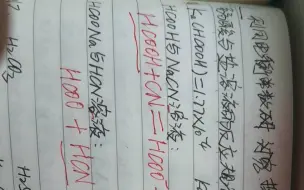 利用电离常数判断
弱酸与盐溶液的反应规
Ka(HCOOH)=1.77×10⁻⁴ K
HCOOH与NaCN溶液:
HCOOH+CN⁻=HCOO⁻
HCOONa与HCN溶液:
HCOO⁻+HCN
H₂CO₃